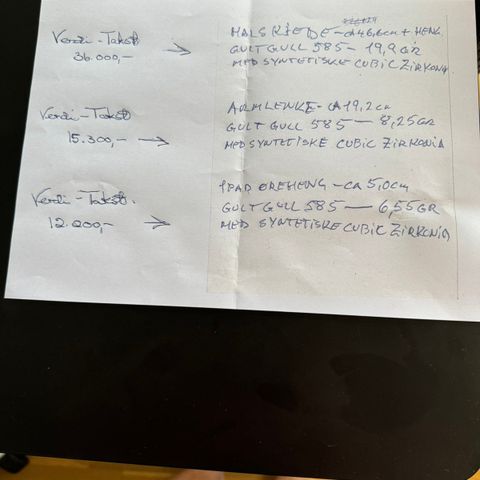 Verdi-Takst
36.000,-
HALSKJEDE - CA 46,6cm + HENG.
GULT GULL 585 - 19,9 GR
MED SYNTETISKE CUBIC ZIRKONIA
Verdi-Takst
15.300,-
ARMLENKE - CA 19,2 cm
GULT GULL 585 - 8,25 GR
MED SYNTETISKE CUBIC ZIRKONIA
Verdi-Takst.
12.200,-
1 PAR ØREHENG - CA 5,0cm
GULT GULL 585 - 6,55 GR
MED SYNTETISKE CUBIC ZIRKONIA